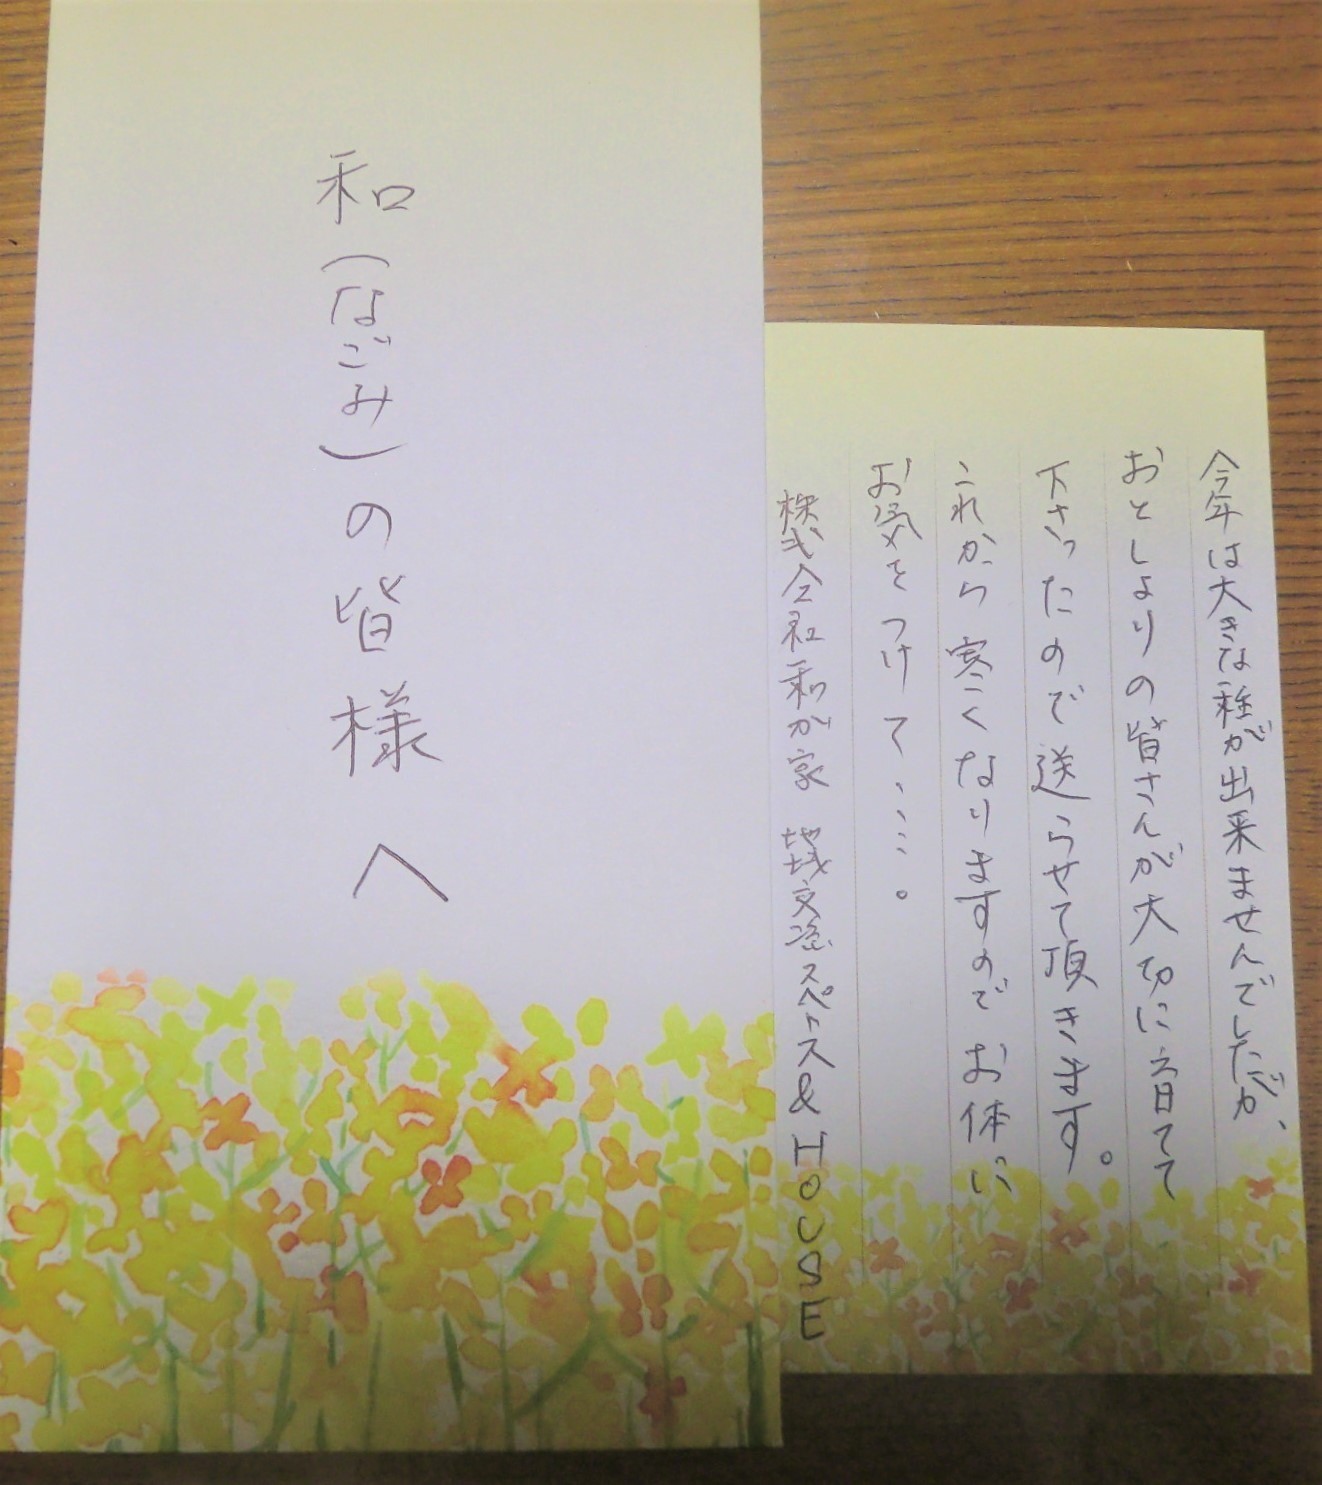 和(なごみ)の皆様へ
今年は大きな種が出来ませんでしたが、
おとしよりの皆さんが大切に育てて
下さったので送らせて頂きます。
これから寒くなりますのでお体に
お気をつけて、、、、。
株式会社和が家 地域交流スペース&HOUSE